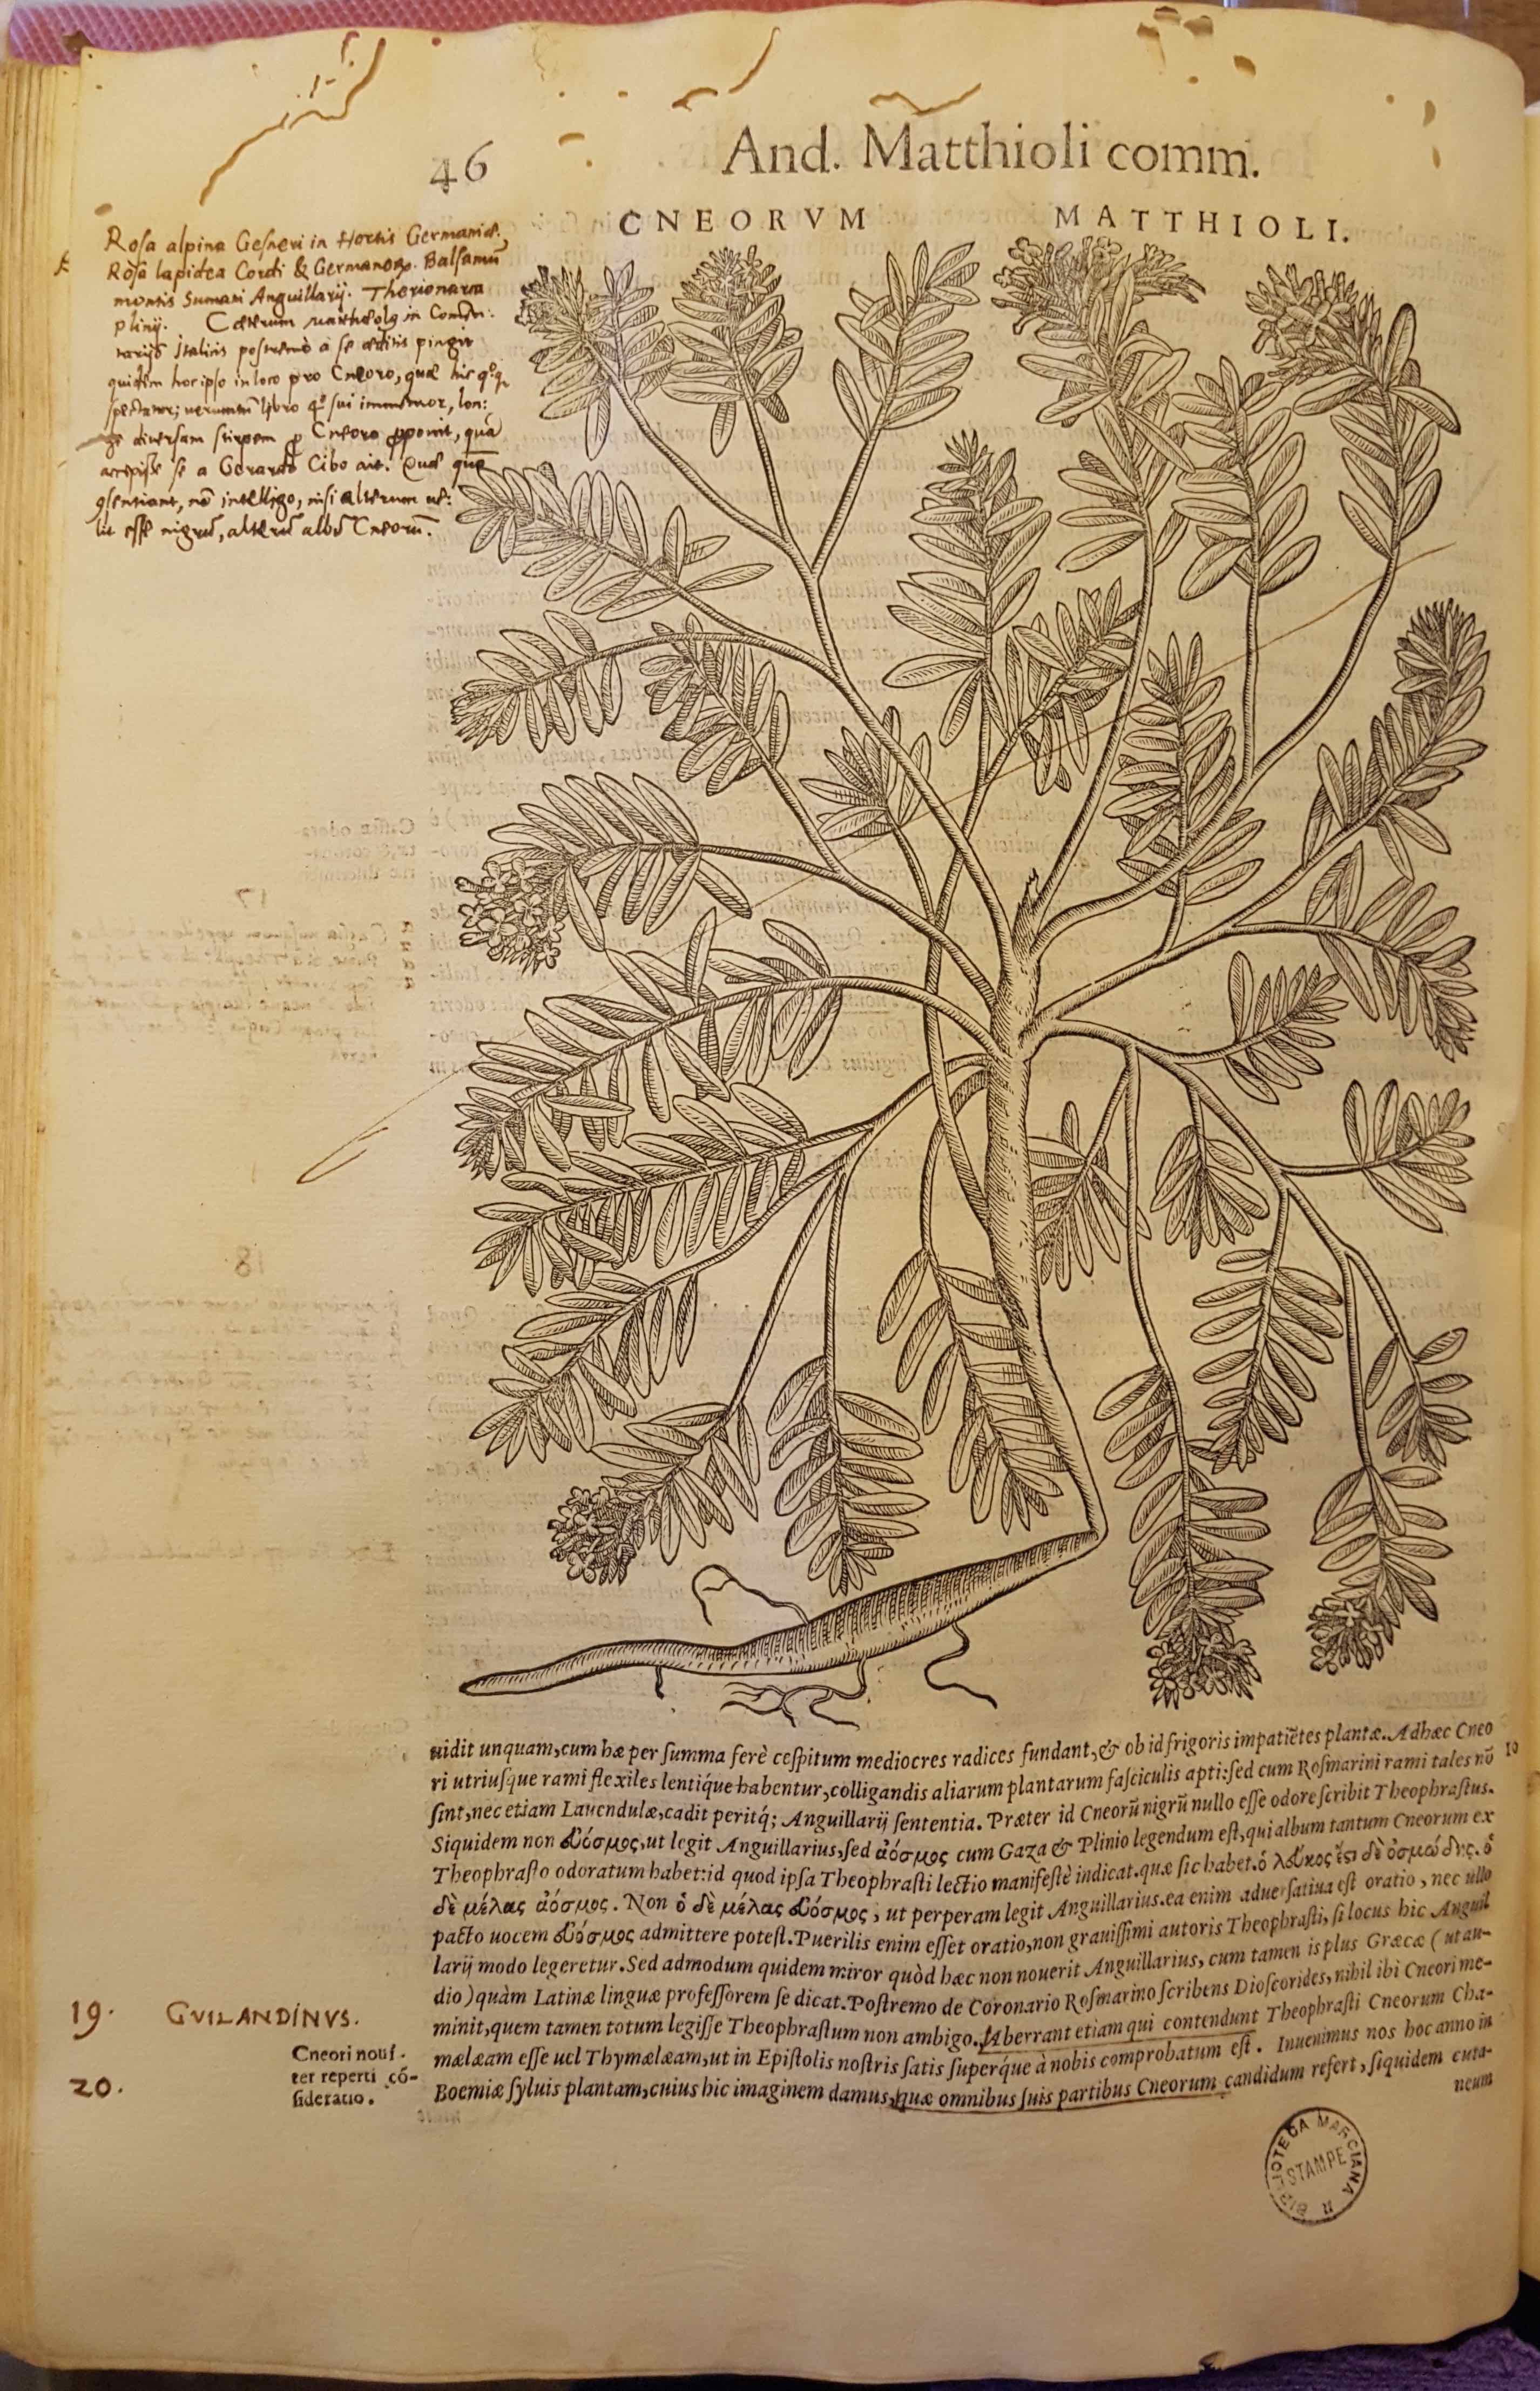 46
And. Matthioli comm.
CNEORVM MATTHIOLI.
Rosa alpina Gesneri in Hortis Germaniæ,
Rosa lapidea Cordi & Germanoꝝ. Balsamū
montis Sumani Anguillarij. Therionarca
plinij. Cæterum matheolꝯ in Commen:
tarijs Italicis postremò a se æditis pingit
quidem hoc ipso in loco pro Cneoro, quæ hic
spectatur; uerum libro 4º sui immemor, lon:
ge diuersam stirpem ꝓ Cneoro ꝓponit, quā
accepisse se a Gerardo Cibo ait. Quæ quō
ꝯsentiant, nō intelligo, nisi alterum ue:
lit esse nigrū, alterū albū Cneorū.
uidit unquam, cum hæ per summa ferè ceſpitum mediocres radices fundant, & ob id frigoris impatiētes plantæ. Adhæc Cneo
10
ri utriuſque rami flexiles lentiq́ue habentur, colligandis aliarum plantarum faſciculis apti: ſed cum Roſmarini rami tales nō
ſint, nec etiam Lauendulæ, cadit peritq́; Anguillarij ſententia. Præter id Cneorū nigrū nullo eſſe odore ſcribit Theophraſtus.
Siquidem non εὔοσμος, ut legit Anguillarius, ſed ἄοσμος cum Gaza & Plinio legendum eſt, qui album tantum Cneorum ex
Theophraſto odoratum habet: id quod ipſa Theophraſti lectio manifeſtè indicat. quæ ſic habet. ὁ λευκος ἔςι δὲ ὀσμώδης. ὁ
δὲ μέλας ἀόσμος. Non ὁ δὲ μέλας εὐόσμος, ut perperam legit Anguillarius. ea enim aduerſatiua eſt oratio, nec ullo
pacto uocem εὐόσμος admittere poteſt. Puerilis enim eſſet oratio, non grauiſſimi autoris Theophraſti, ſi locus hic Anguil
larij modo legeretur. Sed admodum quidem miror quòd hæc non nouerit Anguillarius, cum tamen is plus Græcæ (ut au-
dio) quàm Latinæ linguæ profeſſorem ſe dicat. Poſtremo de Coronario Roſmarino ſcribens Dioſcorides, nihil ibi Cneori me-
19. GVILANDINVS.
minit, quem tamen totum legiſſe Theophraſtum non ambigo. Aberrant etiam qui contendunt Theophraſti Cneorum Cha-
Cneori nouí-
mælæam eſſe uel Thymælæam, ut in Epiſtolis noſtris ſatis ſuperq́ue à nobis comprobatum eſt. Inuenimus nos hoc anno in
ter reperti cō-
20.
ſideratio.
Boemiæ ſyluis plantam, cuius hic imaginem damus, quæ omnibus ſuis partibus Cneorum candidum refert, ſiquidem cuta-
neum
BIBLIOTECA MARCIANA
STAMPE